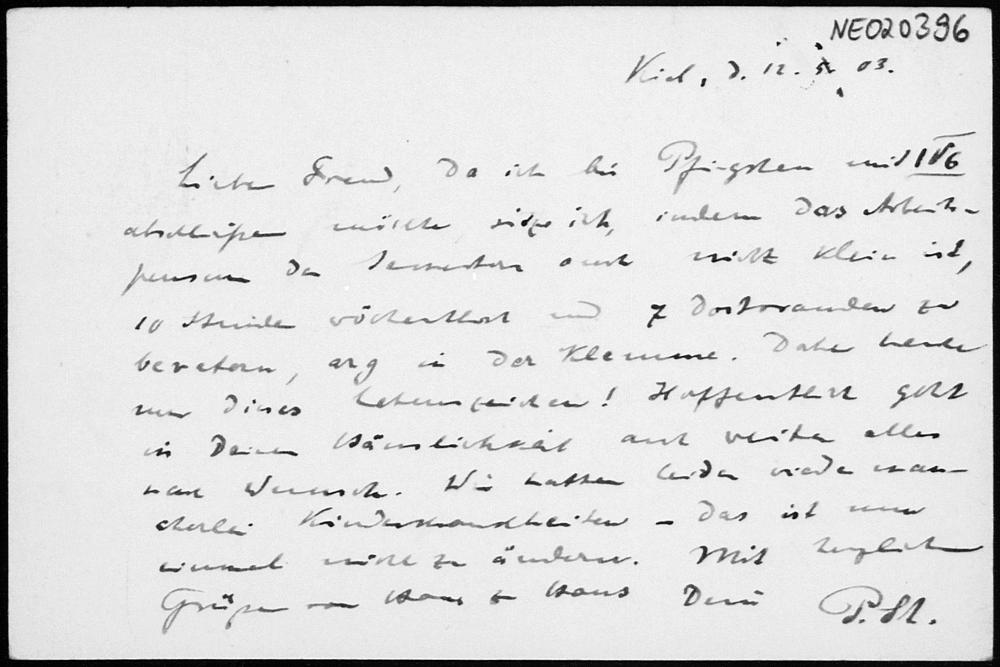 NEO20396
Kiel, d. 12. 03.
Lieber Freund, Da ich bis Pfingsten mit IV6
abschließen möchte, sitze ich, indem das Arbeits-
pensum des Semesters auch nicht klein ist,
10 Stunden wöchentlich und 7 Doktoranden zu
beraten, arg in der Klemme. Daher heute
nur dieses Lebenszeichen! Hoffentlich geht
in Deiner Häuslichkeit auch weiter alles
nach Wunsch. Wir hatten leider wieder man-
cherlei Kinderkrankheiten – das ist nun
einmal nicht zu ändern. Mit herzlichen
Grüßen von Haus zu Haus Dein P. St.